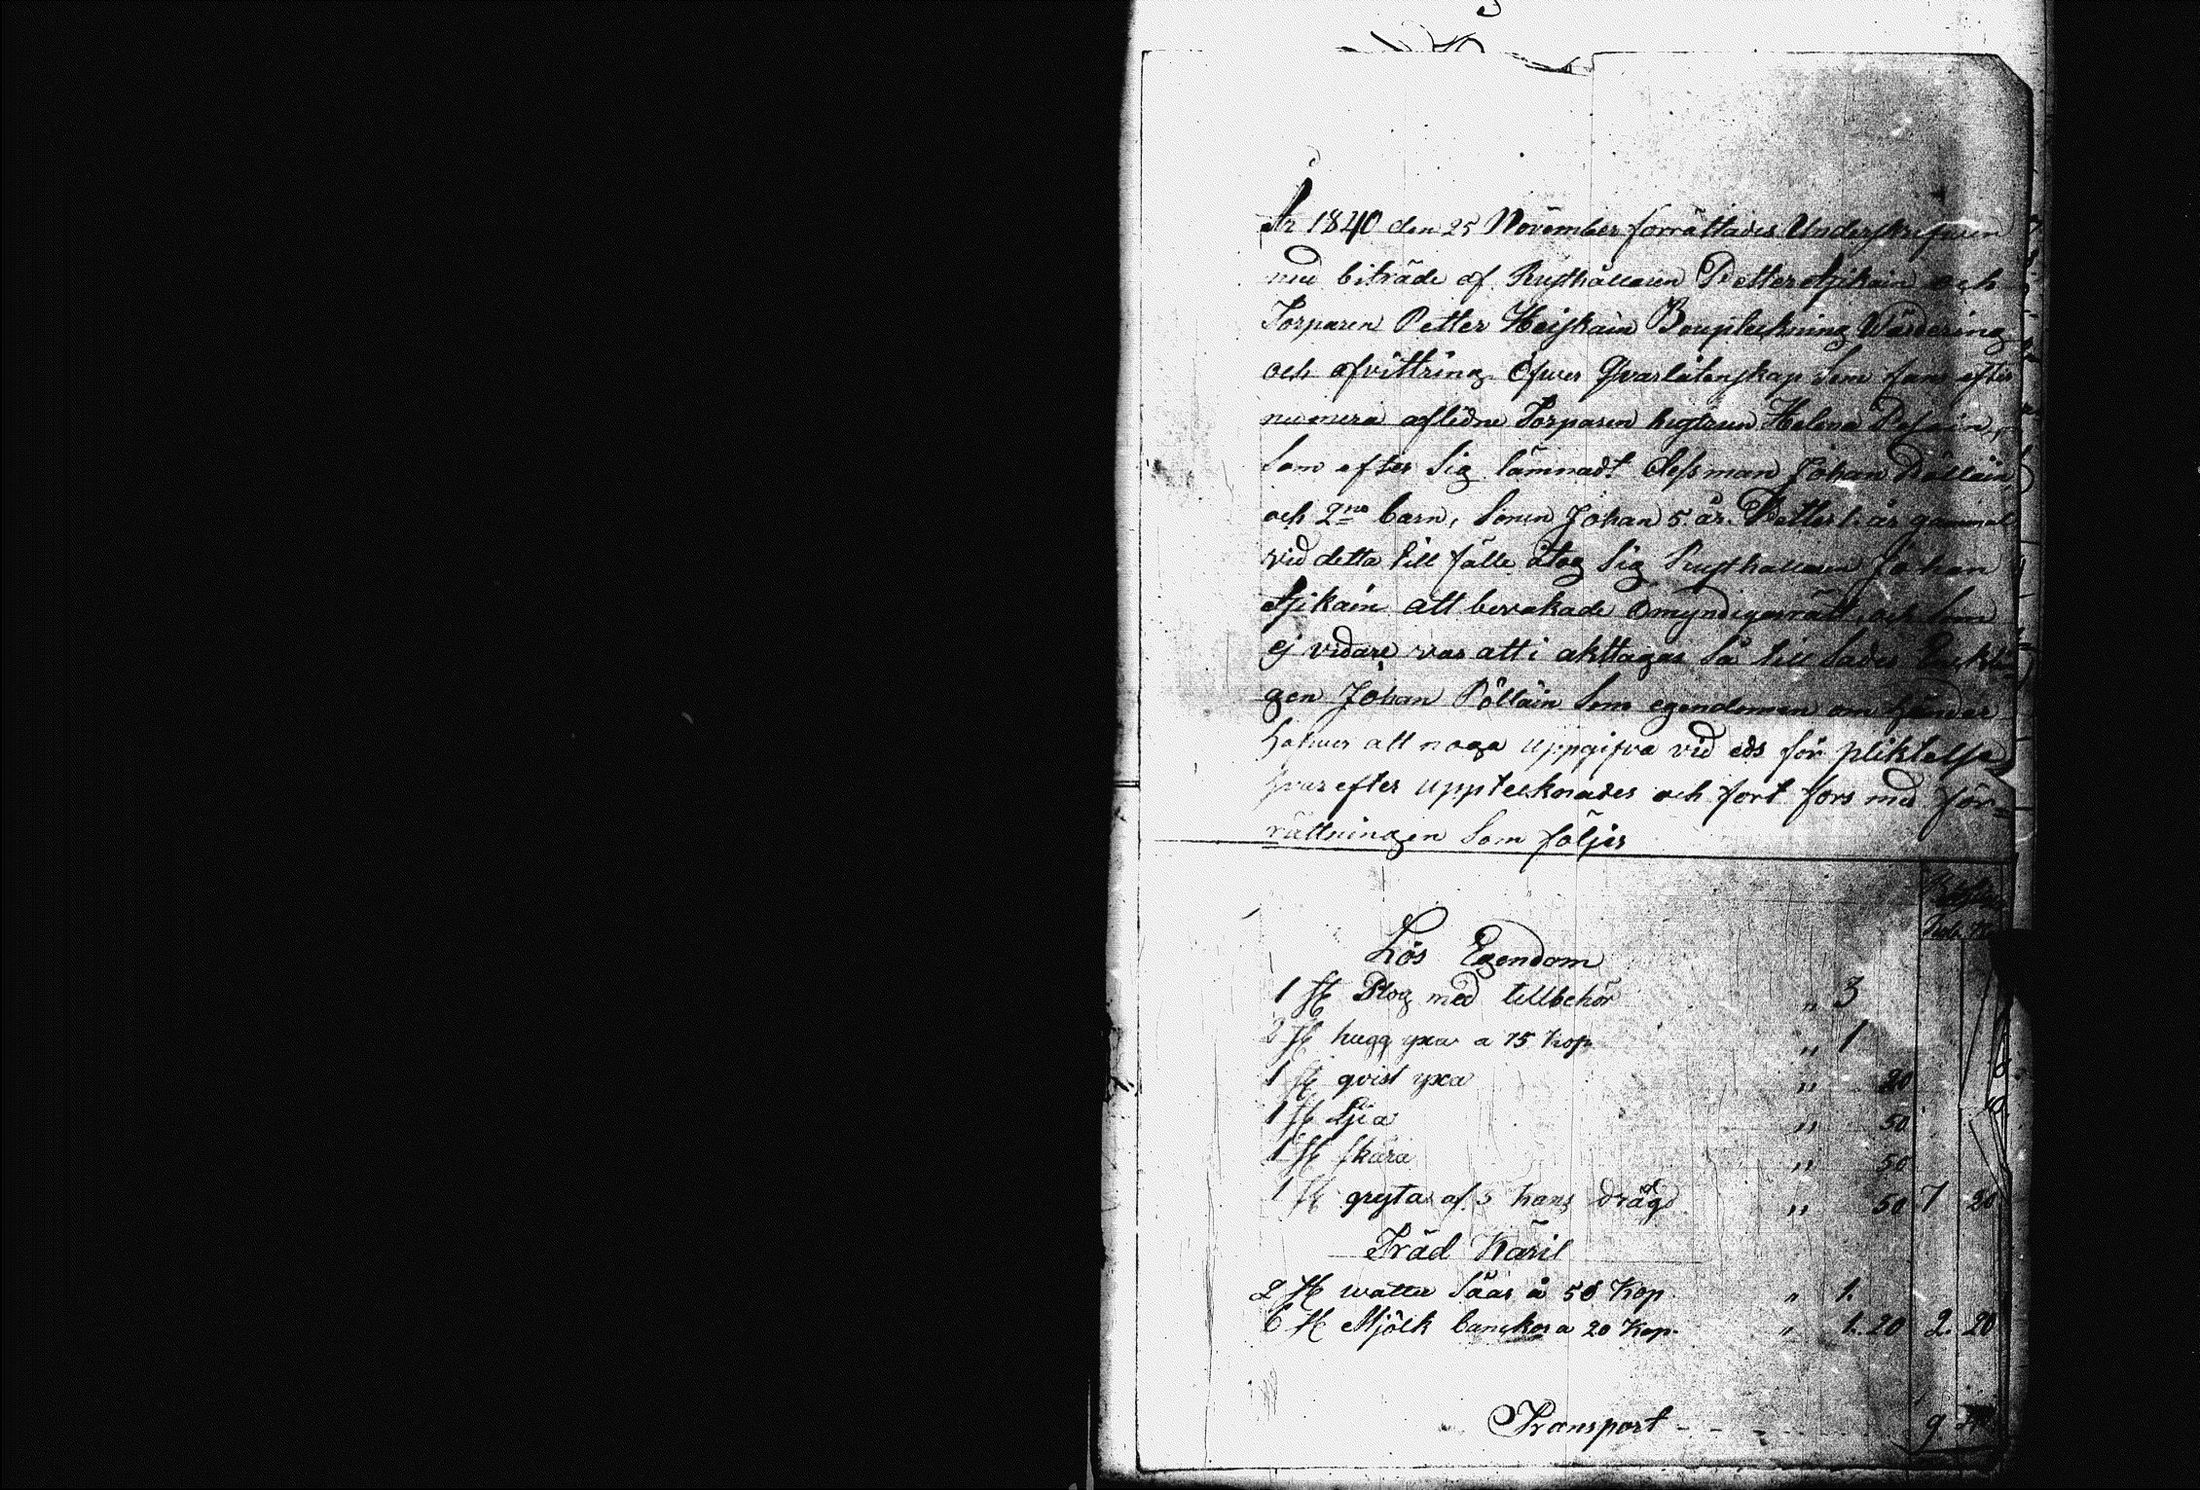 År 1840 den 25 November förrättades Underskrifven
med biträde af Rusthållaren Petter Äjikäin och
Torparen Petter Heiskain Bouptekning Wärdering
och afvittring Öfwer Qvarlåtenskap Som fans efter
numera aflidne Torparen hustrun Helena
Som efter Sig lämnadt Class man Johan Pölläin
och 2ne barn, Sönen Johan 5 år. Petter 1. år gammal
vid detta till fälle åtog Sig Rusthållaren Johan
Äjikäin att bevakade Omyndigas rätt, och Som
ej vidare var att i akttagas Så till Sades Enklin
gen Johan Pölläin Som egendomen om händer
hafwer att noga uppgifva vid eds för pliktelse
hvar efter upptecknades och fort fors med för=
rättningen Som följer
Lös Egendom
1 St Plog med tillbehör " 3
2 St hugg yxa a 75 Kop " 1
1 St qvist yxa " 20
1 St Ljia " 50
1 St Skära " 50
1 St gryta af 3 hans drägd " 50 7 20
Träd Käril
2 St watten Såar á 50 Kop. " 1.
6 St Mjölk bunckor a 20 Kop. " 1. 20 2. 20
Transport - - - - - 9